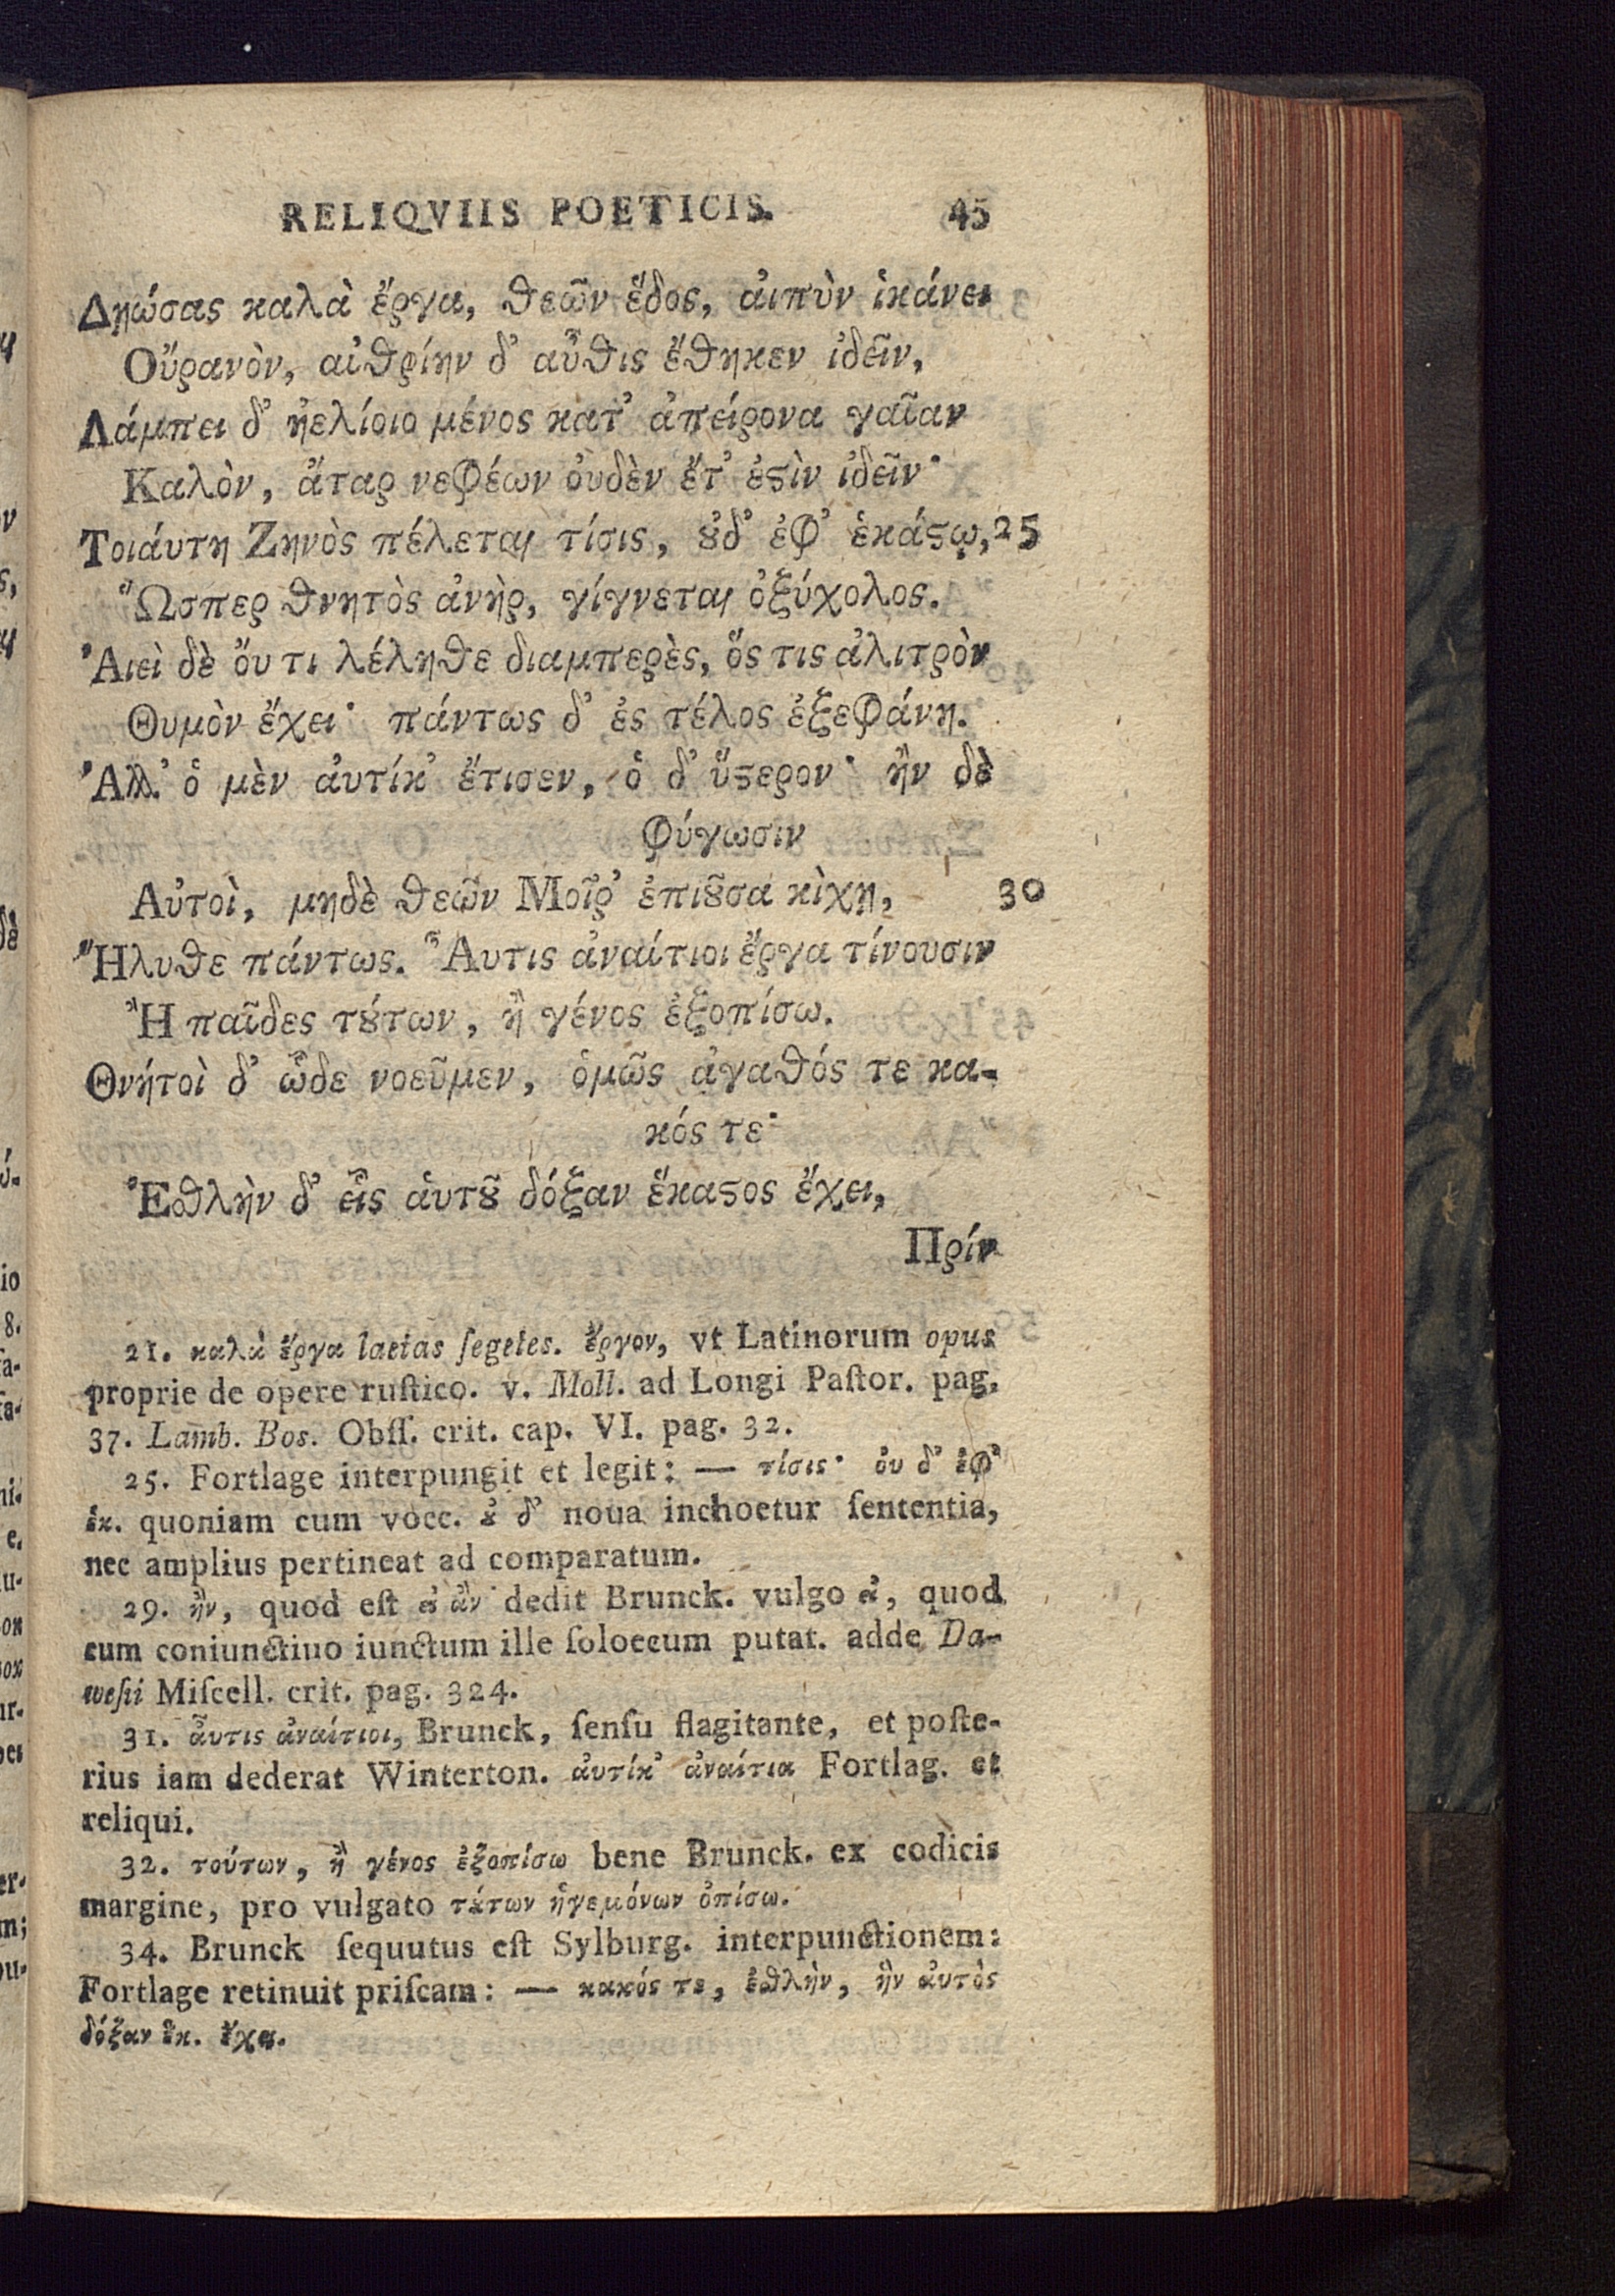 RELIQVIIS POETICIS. 45
Δηώσας καλὰ ἔργα, θεῶν ἕδος, ἀιπὺν ἱκάνει
Οὔρανὸν, αἰθρίην δ' αὖθις ἔθηκεν ἰδεῖν,
Λάμπει δ' ἠελίοιο μένος κατ' ἀπείρονα γαῖαν
Καλὸν, ἄταρ νεφέων ὀυδὲν ἔτ' ἐϛὶν ἰδεῖν·
Τοιάυτη Ζηνὸς πέλεται τίσις, ȣδ' ἐφ' ἑκάϛῳ, 25
Ὥσπερ θνητὸς ἀνὴρ, γίγνεται ὀξύχολος.
Ἀιεὶ δὲ ὄυ τι λέληθε διαμπερὲς, ὅς τις ἀλιτρὸν
Θυμὸν ἔχει· πάντως δ' ἐς τέλος ἐξεφάνη.
Ἀλλ' ὁ μὲν ἀυτίκ' ἔτισεν, ὁ δ' ὕϛερον· ἢν δὲ
φύγωσιν
Αὐτοὶ, μηδὲ θεῶν Μοῖρ' ἐπιȣ͂σα κὶχῃ, 30
Ἤλυθε πάντως. Ἆυτις ἀναίτιοι ἔργα τίνουσιν
Ἢ παῖδες τȣ́των, ἢ γένος ἐξοπίσω.
Θνήτοὶ δ' ὧδε νοεῦμεν, ὁμῶς ἀγαθός τε κα-
κός τε·
Ἐσθλὴν δ' εἷς ἁυτȣ͂ δόξαν ἕκαϛος ἔχει,
Πρίν
21. καλὰ ἔργα laetas ſegetes. ἔργον, vt Latinorum opus
proprie de opere ruſtico. v. Moll. ad Longi Paſtor. pag.
37. Lamb. Bos. Obſſ. crit. cap. VI. pag. 32.
25. Fortlage interpungit et legit: — τίσις· ὀυ δ' ἐφ'
ἑκ. quoniam cum vocc. ȣ̓ δ' noua inchoetur ſententia,
nec amplius pertineat ad comparatum.
29. ἢν, quod eſt εἰ ἂν dedit Brunck. vulgo εἰ, quod
cum coniunctiuo iunctum ille ſoloecum putat. adde Da-
weſii Miſcell. crit. pag. 324.
31. ἆυτις ἀναίτιοι, Brunck, ſenſu flagitante, et poſte-
rius iam dederat Winterton. ἀυτίκ' ἀναίτια Fortlag. et
reliqui.
32. τούτων, ἢ γένος ἐξοπίσω bene Brunck. ex codicis
margine, pro vulgato τȣ́των ἡγεμόνων ὀπίσω.
34. Brunck ſequutus eſt Sylburg. interpunctionem:
Fortlage retinuit priſcam: — κακός τε, ἐσθλὴν, ἣν ἀυτὸς
δόξαν ἕκ. ἔχει.